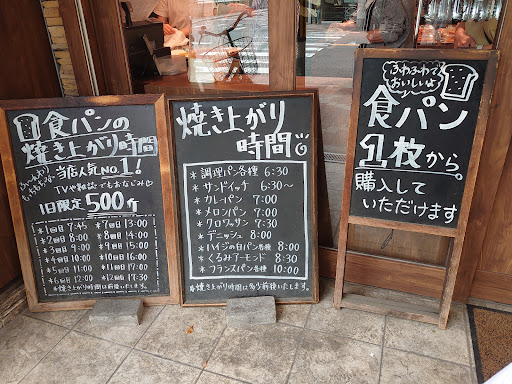 食パンの
焼き上がり時間
ふ〜わふわ
もっちもち
当店人気NO.1!
TVや雑誌でもおなじみ
1日限定500斤
*1回目 7:45 *7回目 13:00
*2回目 8:00 *8回目 14:00
*3回目 9:00 *9回目 15:00
*4回目 10:00 *10回目 16:00
*5回目 11:00 *11回目 17:00
*6回目 12:00 *12回目 17:30
*焼き上がり時間は前後いたします。
焼き上がり
時間
*調理パン各種 6:30
*サンドイッチ 6:30〜
*カレーパン 7:00
*メロンパン 7:00
*クロワッサン 7:30
*デニッシュ 8:00
*ハイジの白パン各種 8:00
*くるみアーモンド 8:30
*フランスパン各種 10:00
*焼き上がり時間は多少前後いたします。
ふわふわで
おいしいよ
食パン
1枚から。
購入して
いただけます